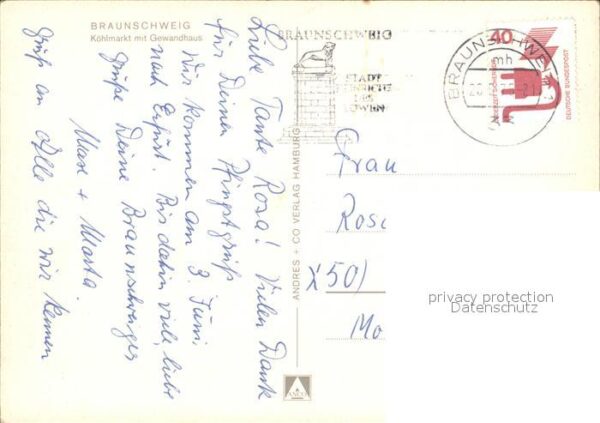 BRAUNSCHWEIG
Kohlmarkt mit Gewandhaus
Liebe Tante Rosa! Vielen Dank
für Deinen Pfingstgruß
Wir kommen am 3. Juni
nach Erfurt. Bis dahin viele, liebe
Grüße Deine Braunschweiger
Max + Marta.
Gruß an Alle die wir kennen
ANDRES + CO VERLAG HAMBURG
ANCO
BRAUNSCHWEIG
STADT
HEINRICHS
DES
LÖWEN
BRAUNSCHWEIG
mh
40
DEUTSCHE BUNDESPOST
Frau
Rosa
X501
Ma
privacy protection
Datenschutz